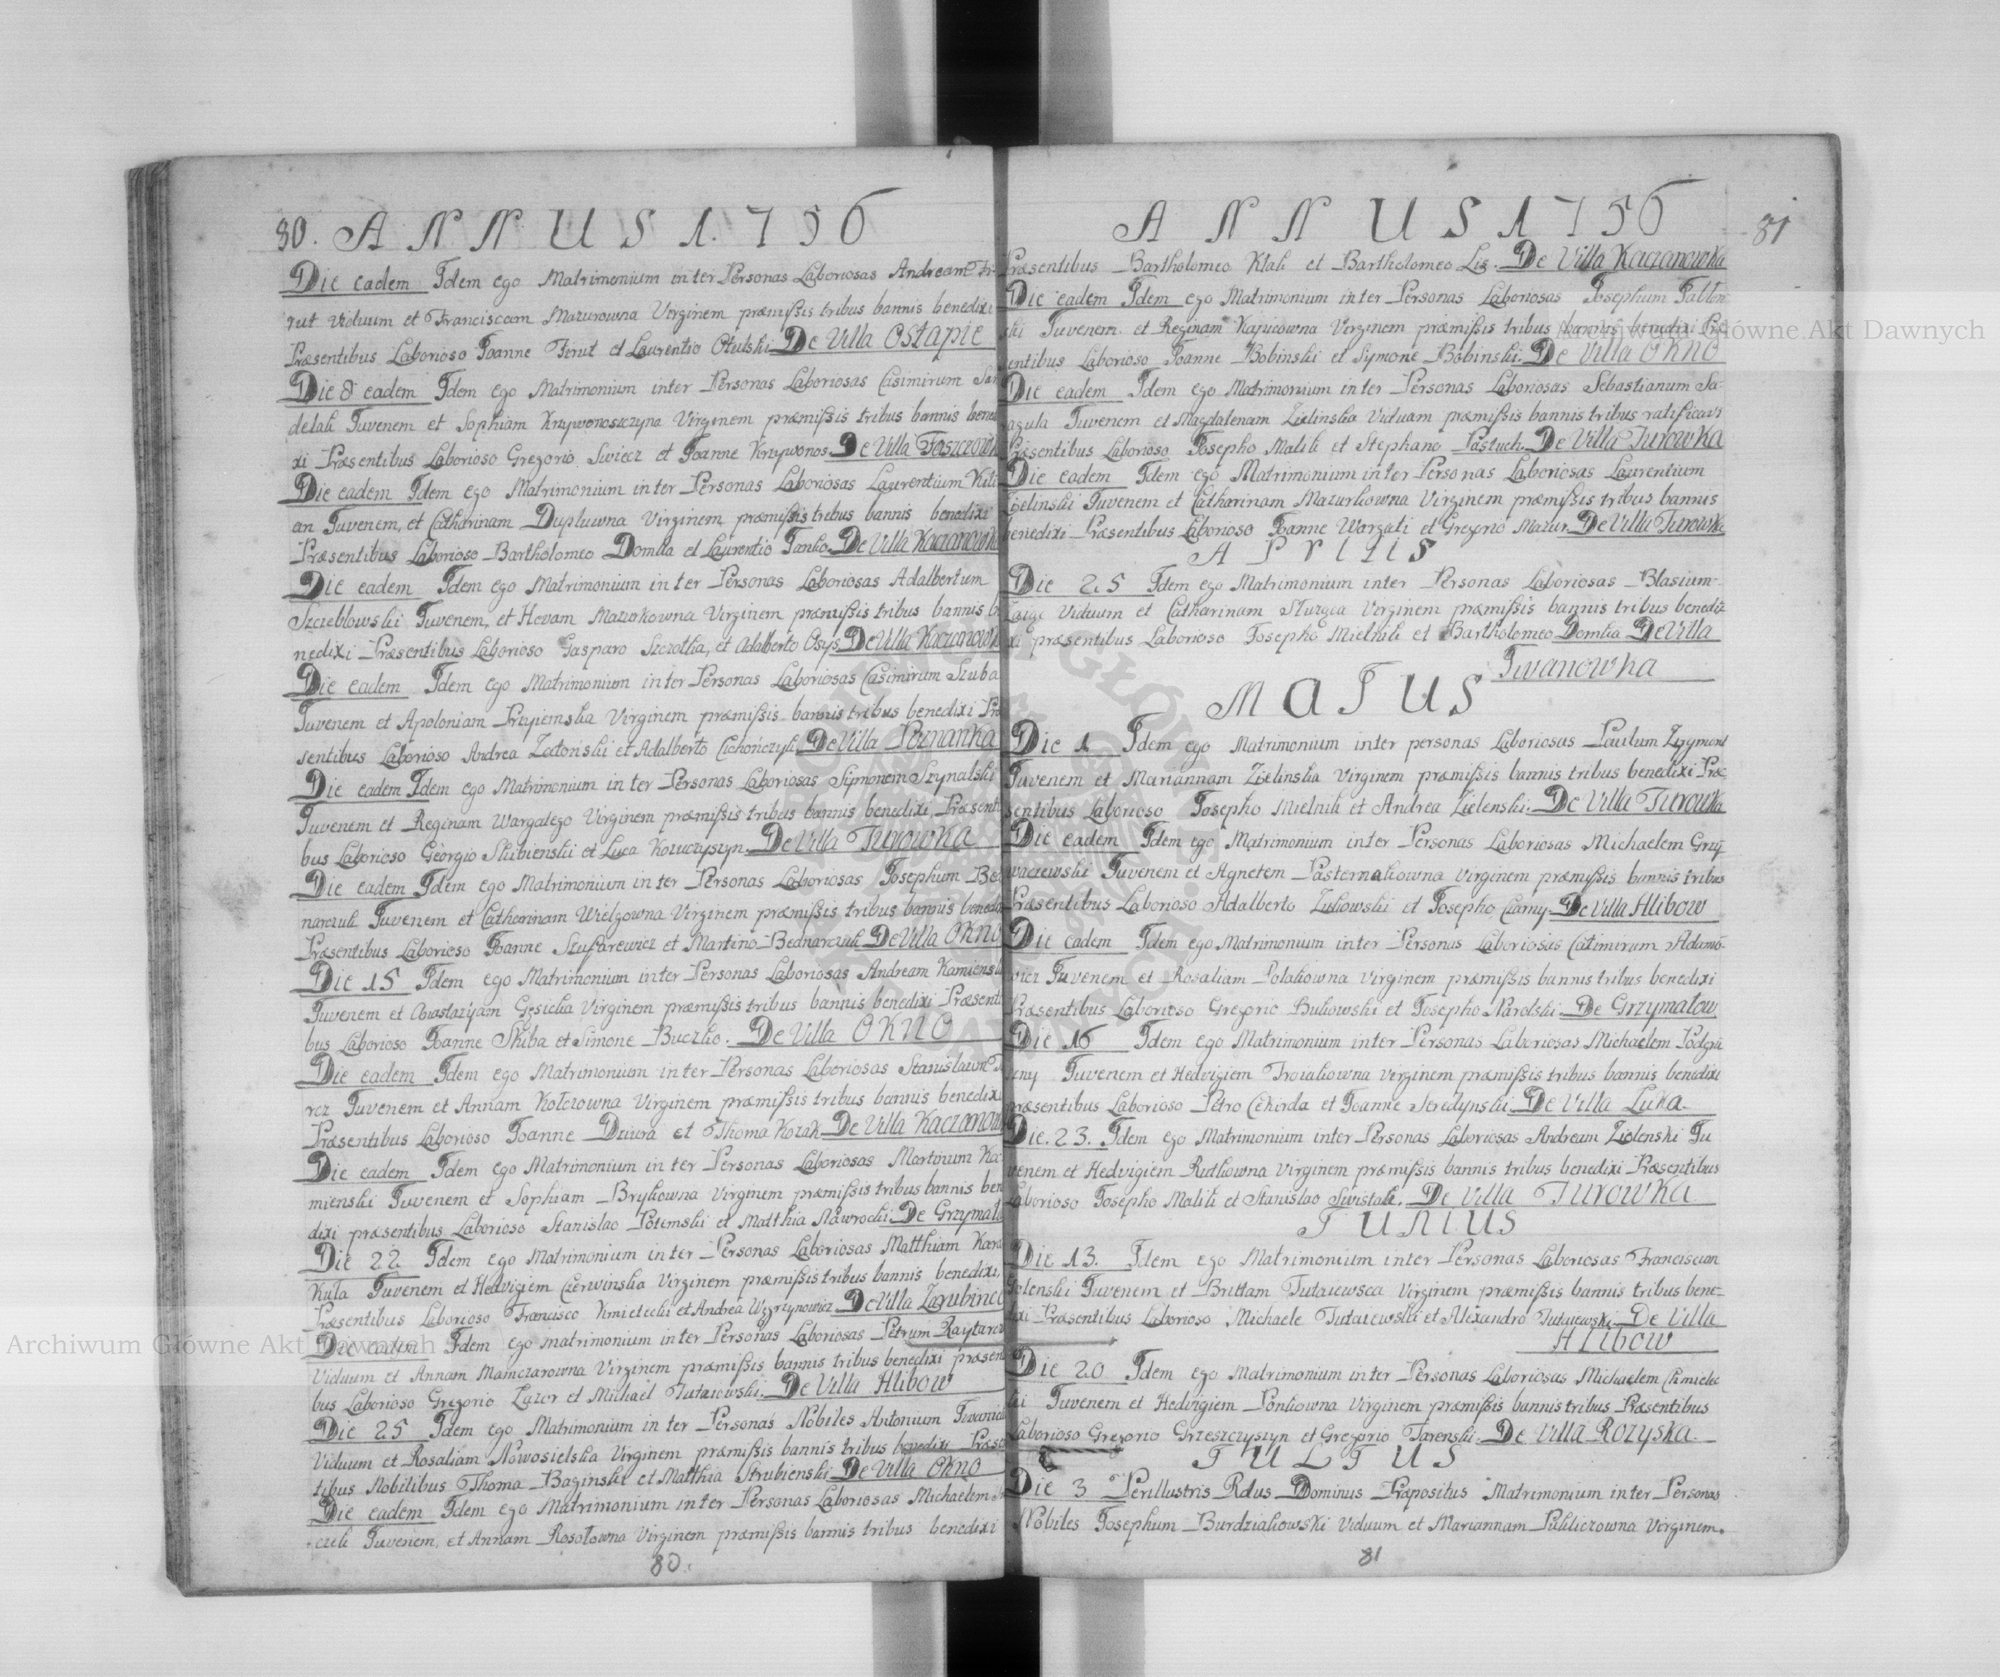 80. ANNUS 1.756
Die eadem Idem ego Matrimonium inter Personas Laboriosas Andream Fi-
rut Viduum et Franciscam Mazurowna Virginem præmissis tribus bannis benedixi
Præsentibus Laborioso Joanne Firut et Laurentio Otulski De Villa Ostapie
Die 8 eadem Idem ego Matrimonium inter Personas Laboriosas Casimirum
delak Juvenem et Sophiam Krzywonosiczyna Virginem præmissis tribus bannis bened
xi Præsentibus Laborioso Gregorio Swiecz et Joanne Krzywonos. De Villa
Die eadem Idem ego Matrimonium inter Personas Laboriosas Laurentium Kili
an Juvenem, et Catharinam Dupluwna Virginem præmissis tribus bannis benedixi
Præsentibus Laborioso Bartholomeo Domka et Laurentio Janko. De Villa Kaczanowka
Die eadem Idem ego Matrimonium inter Personas Laboriosas Adalbertum
Szczeblowski Juvenem, et Hevam Mazurkowna Virginem præmissis tribus bannis be
nedixi Præsentibus Laborioso Gasparo Szczotka, et Adalberto Osys. De Villa Kaczanowk
Die eadem Idem ego Matrimonium inter Personas Laboriosas Casimirum Szuba
Juvenem et Apoloniam Przyiemska Virginem præmissis bannis tribus benedixi Præ
sentibus Laborioso Andrea Zatonski et Adalberto Cichończyk. De Villa Poznanka
Die eadem Idem ego Matrimonium inter Personas Laboriosas Symonem Szynalski
Juvenem et Reginam Wargalego Virginem præmissis tribus bannis benedixi, Præsenti
bus Laborioso Georgio Skibienski et Luca Kozuczyszyn. De Villa Turowka
Die eadem Idem ego Matrimonium inter Personas Laboriosas Josephum Bed
narczuk Juvenem et Catharinam Wielgowna Virginem præmissis tribus bannis benedi
Præsentibus Laborioso Joanne Szuszarewicz et Martino Bednarczuk De Villa OKNO
Die 15 Idem ego Matrimonium inter Personas Laboriosas Andream Kamiensk
Juvenem et Anastazyam Gęsicka Virginem præmissis tribus bannis benedixi Præsenti
bus Laborioso Joanne Skiba et Simone Buczko. De Villa OKNO
Die eadem Idem ego Matrimonium inter Personas Laboriosas Stanislaum
rcz Juvenem et Annam Kołczowna Virginem præmissis tribus bannis benedixi
Præsentibus Laborioso Joanne Dziura et Thoma Kozak De Villa Kaczanow
Die eadem Idem ego Matrimonium inter Personas Laboriosas Martinum Ka-
mienski Juvenem et Sophiam Brykowna Virginem præmissis tribus bannis ben
dixi præsentibus Laborioso Stanislao Potemski et Matthia Nawrocki. De Grzymało
Die 22 Idem ego Matrimonium inter Personas Laboriosas Matthiam Kara
Kuła Juvenem et Hedvigiem Czerwinska Virginem præmissis tribus bannis benedixi,
Præsentibus Laborioso Francisco Kmietecki et Andrea Węgrzynowicz. De Villa Zarubince
Die eadem Idem ego matrimonium inter Personas Laboriosas Petrum Raytaro
Viduum et Annam Mainczarowna Virginem præmissis bannis tribus benedixi præsen
bus Laborioso Gregorio Lazor et Michael Tutaiowski. De Villa Alibow
Die 25 Idem ego Matrimonium inter Personas Nobiles Antonium Iwanick
Viduum et Rosaliam Nowosielska Virginem præmissis bannis tribus benedixi Præsen
tibus Nobilibus Thoma Bazinski et Matthia Strubienski De Villa OKNO
Die eadem Idem ego Matrimonium inter Personas Laboriosas Michaelem
czek Juvenem, et Annam Rosołowna Virginem præmissis bannis tribus benedixi
80.
ANNUS 1756 81
Præsentibus Bartholomeo Ktak et Bartholomeo Lis. De Villa Kaczanowka
Die eadem Idem ego Matrimonium inter Personas Laboriosas Josephum Jabłon
ski Juvenem et Reginam Kapicowna Virginem præmissis tribus bannis benedixi Præ
sentibus Laborioso Joanne Bobinski et Symone Bobinski. De Villa OKNO
Die eadem Idem ego Matrimonium inter Personas Laboriosas Sebastianum Sa-
ragula Juvenem et Magdalenam Zielinska Viduam præmissis bannis tribus ratificavi
Præsentibus Laborioso Josepho Malik et Stephano Pastuch. De Villa Turowka
Die eadem Idem ego Matrimonium inter Personas Laboriosas Laurentium
Zielinski Juvenem et Catharinam Mazurkowna Virginem præmissis tribus bannis
benedixi Præsentibus Laborioso Joanne Wargali et Gregorio Mazur. De Villa Turowka
APRILIS
Die 25 Idem ego Matrimonium inter Personas Laboriosas Blasium
Viduum et Catharinam Sturga Virginem præmissis bannis tribus benedix
xi præsentibus Laborioso Josepho Mielnik et Bartholomeo Domka De Villa
Iwanowka
MAJUS
Die 1 Idem ego Matrimonium inter personas Laboriosas Paulum Zygmont
Juvenem et Mariannam Zielinska Virginem præmissis bannis tribus benedixi Præ
sentibus Laborioso Josepho Mielnik et Andrea Zielenski. De Villa Turowka
Die eadem Idem ego Matrimonium inter Personas Laboriosas Michaelem Grzy
waczewski Juvenem et Agnetem Pasternakowna Virginem præmissis bannis tribus
Præsentibus Laborioso Adalberto Zukowski et Josepho Czarny. De Villa Alibow
Die eadem Idem ego Matrimonium inter Personas Laboriosas Casimirum Adamo-
wicz Juvenem et Rosaliam Polakowna Virginem præmissis bannis tribus benedixi
Præsentibus Laborioso Gregorio Bukowski et Josepho Narolski. De Grzymałow
Die 16 Idem ego Matrimonium inter Personas Laboriosas Michaelem Podgru
Juvenem et Hedvigiem Troiakowna Virginem præmissis tribus bannis benedixi
præsentibus Laborioso Petro Czkirda et Joanne Seredynski. De Villa Luka.
Die. 23. Idem ego Matrimonium inter Personas Laboriosas Andream Zielenski Ju
venem et Hedvigiem Rutkowna Virginem præmissis bannis tribus benedixi Præsentibus
Laborioso Josepho Malik et Stanislao Swistak. De Villa Turowka
JUNIUS
Die 13. Idem ego Matrimonium inter Personas Laboriosas Franciscum
Juvenem et Brittam Tutaiewsca Virginem præmissis bannis tribus bene-
dixi Præsentibus Laborioso Michaele Tutaiewski et Alexandro Tutaiewski. De Villa
Alibow
Die 20 Idem ego Matrimonium inter Personas Laboriosas Michaelem Chmiele
cki Juvenem et Hedvigiem Ponkowna Virginem præmissis bannis tribus Præsentibus
Laborioso Gregorio Grzeszczyszyn et Gregorio Jarenski. De Villa Rozyska.
JULIUS
Die 3 Perillustris Rdus Dominus Præpositus Matrimonium inter Personas
Nobiles Josephum Burdziakowski Viduum et Mariannam Pukliczowna Virginem.
81
Archiwum Główne Akt Dawnych
Archiwum Główne Akt Dawnych